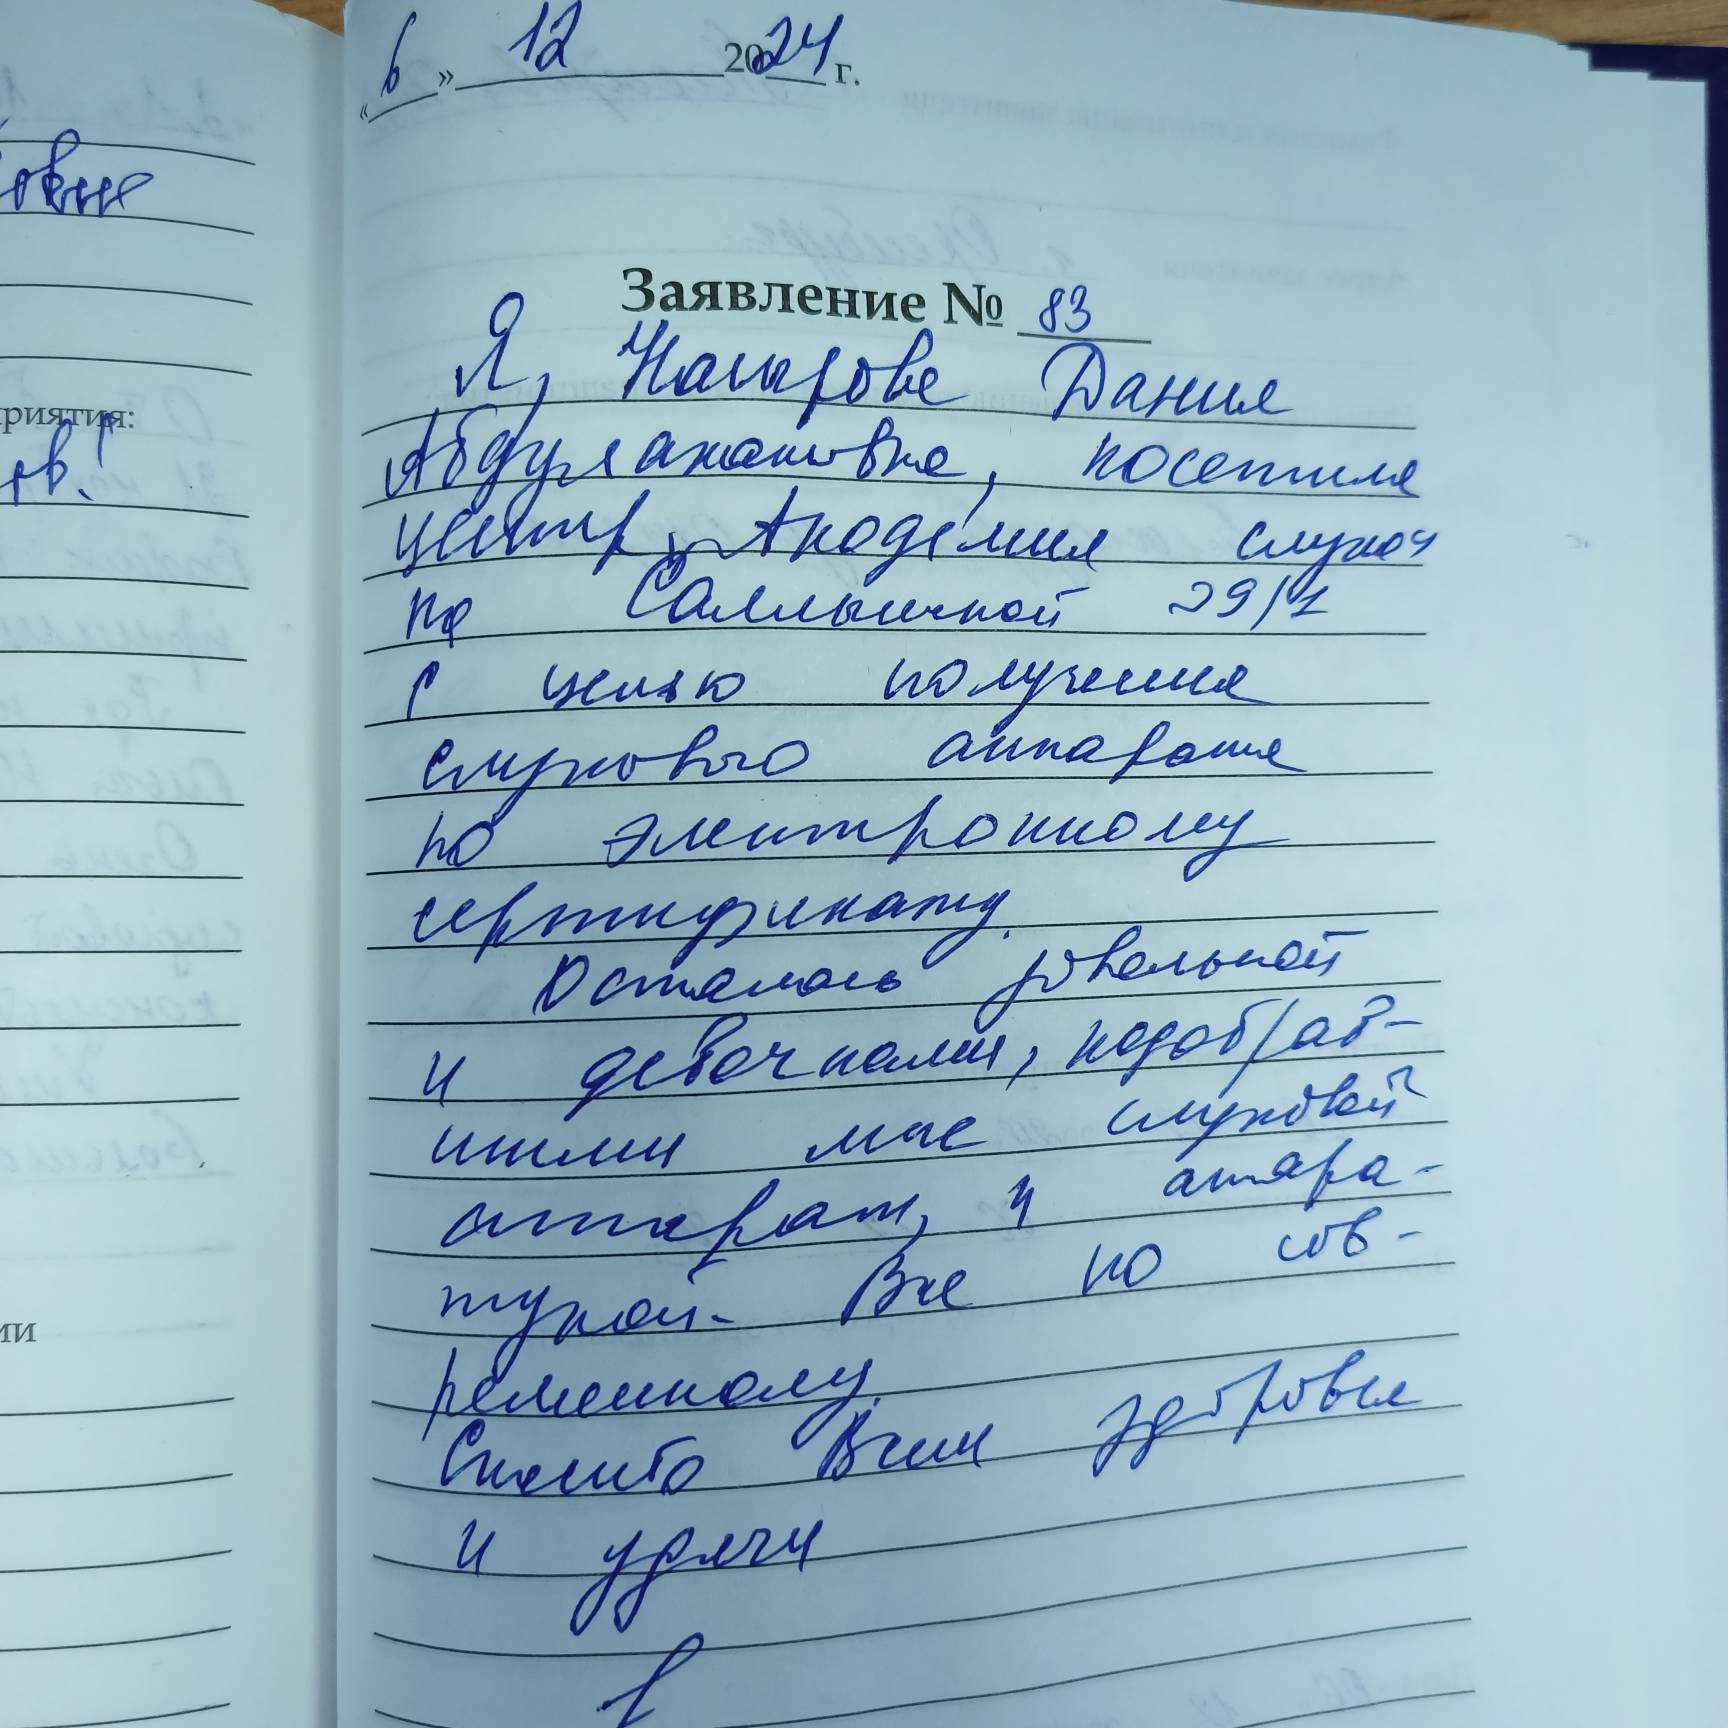 «6» 12 2024 г.
Заявление № 83
Я, Насырова Дания
посетила
центр, Академия слуха
по Салмышской 29/1
с целью получения
слухового аппарата
по электронному
сертификату.
Осталась довольной
и девочками, подобрав-
шими мне слуховой
аппарат, и аппара-
турой. Все по сов-
ременному.
Спасибо Всем здоровья
и удачи
приятия:
ии